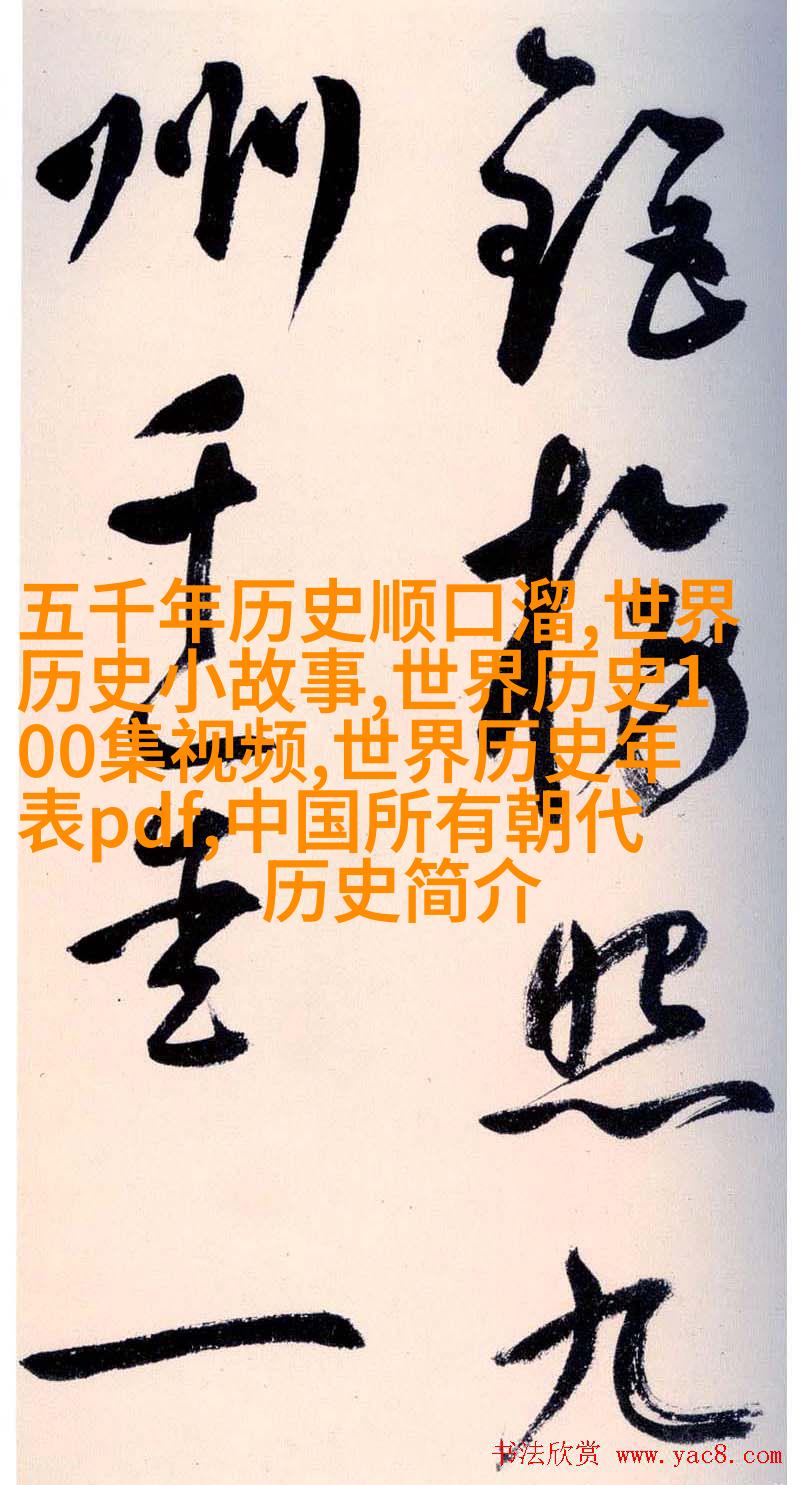 照九
州千一
五千年历史顺口溜,世界
历史小故事,世界历史1
00集视频,世界历史年
表pdf,中国所有朝代
历史简介
书法欣赏 www.yac8.com